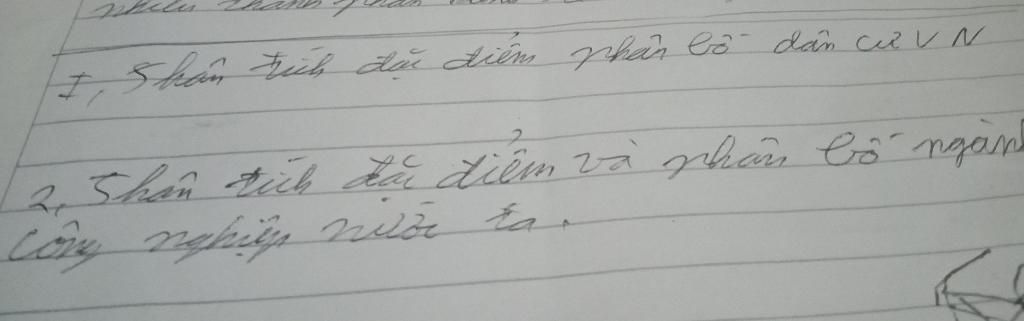 nhiều thành phần
I, Phân tích đặc điểm phân bố dân cư VN
2, Phân tích đặc điểm và phân bố ngành
công nghiệp nước ta.